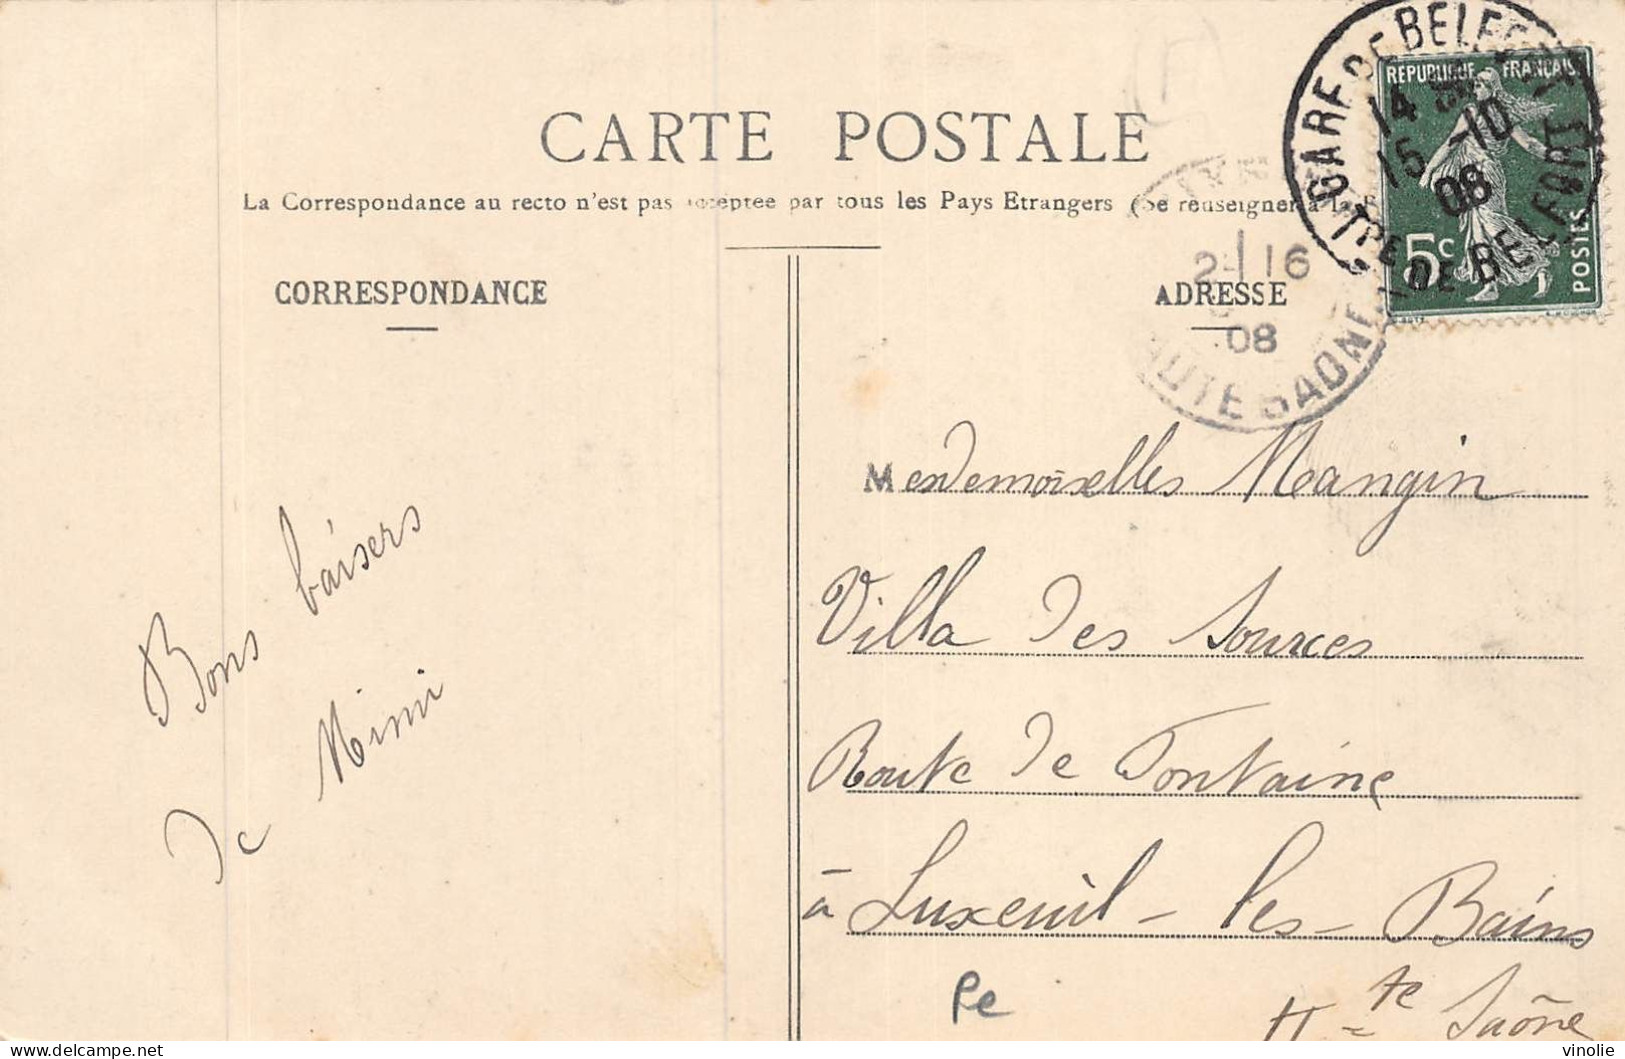 CARTE POSTALE
La Correspondance au recto n'est pas acceptée par tous les Pays Etrangers (Se renseigner à la
CORRESPONDANCE
ADRESSE
GARE DE BELFORT
14
15 -10
08
TRE DE BELFORT
REPUBLIQUE FRANÇAISE
5c
POSTES
2- 16
08
HAUTE SAONE
Mesdemoiselles Mangin
Villa des Sources
Route de Fontaine
à Luxeuil-les-Bains
Hte Saône
Bons baisers
de Mimi
Pe
vinolie
delcampe.net